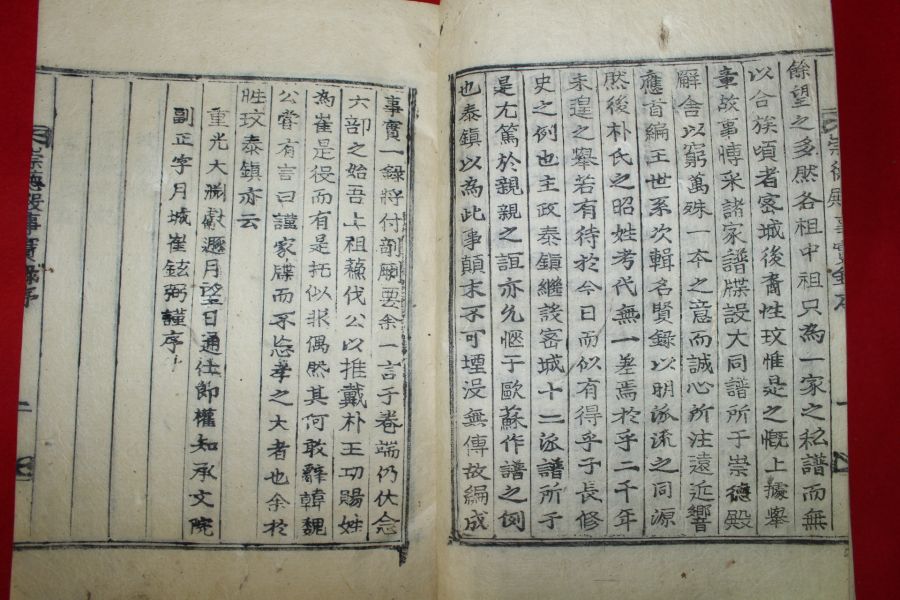 餘望之多然各祖中祖只為一家之私譜而無
以合族頃者密城後裔性玟惟是之慨上據舉
章故事博采諸家譜牒設大同譜所于崇德殿
解舍以窮萬殊一本之意而誠心所注遠近響
應首編王世系次輯名賢錄以明派流之同源
然後朴氏之昭姓考代無一差焉於乎二千年
未遑之擧若有待於今日而似有得乎子長修
史之例也主政泰鎭繼談密城十二派譜所于
是尤篤於親親之誼亦允愜于歐蘇作譜之例
也泰鎭以為此事顛末不可堙没無傳故編成
事實一錄將付剞劂要余一言于卷端仍伏念
六部之始吾上祖蘓伐公以推戴朴王功賜姓
為崔是役而有是托似非偶然其何敢辭韓魏
公嘗有言曰謹家牒而不忘孝之大者也余於
性玟泰鎭亦云
重光大淵獻 月望日通仕郎權知承文院
副正字月城崔鉉弼謹序
崇德殿事實錄序